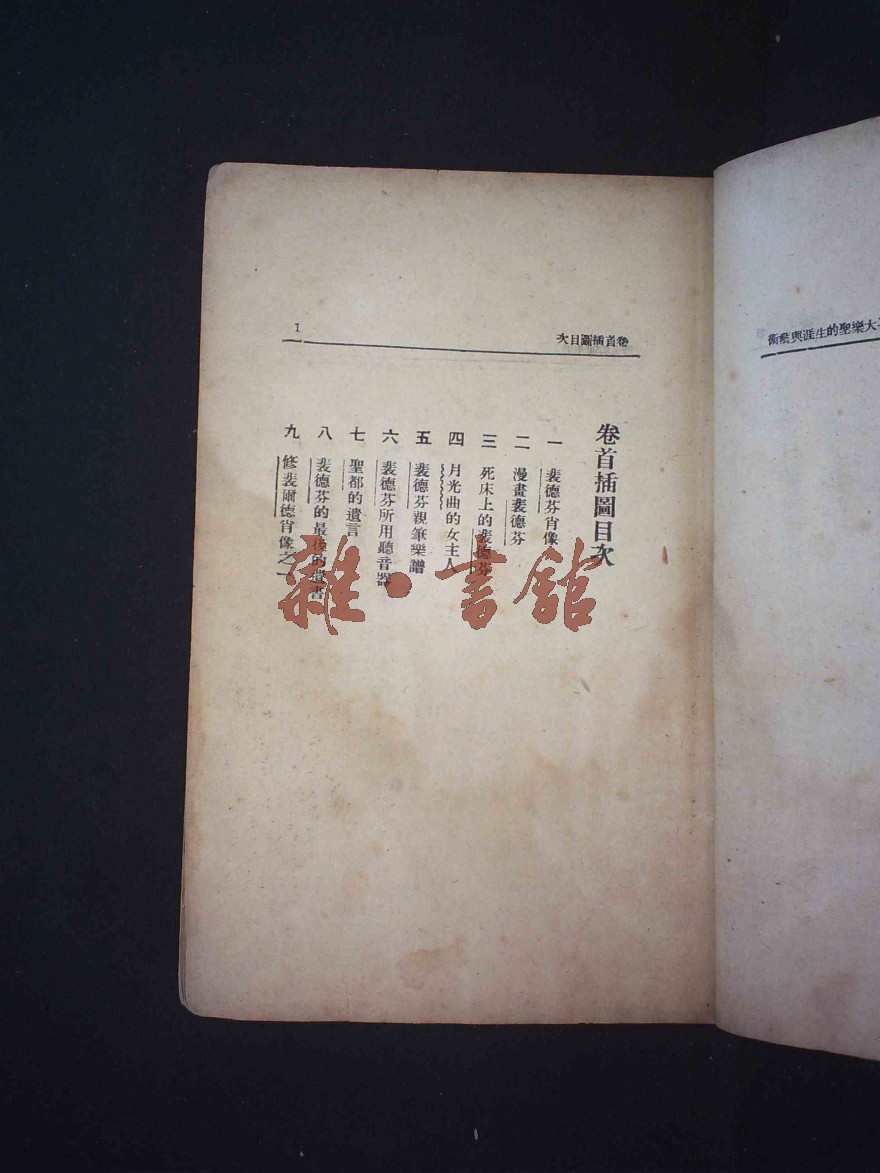 卷首插圖目次
1
卷首插圖目次
一 裴德芬肖像
二 漫畫裴德芬
三 死床上的裴德芬
四 月光曲的女主人
五 裴德芬親筆樂譜
六 裴德芬所用聽音器
七 聖都的遺言
八 裴德芬的最後的遺書
九 修裴爾德肖像之一
雜·書館
大樂聖的生涯與藝術